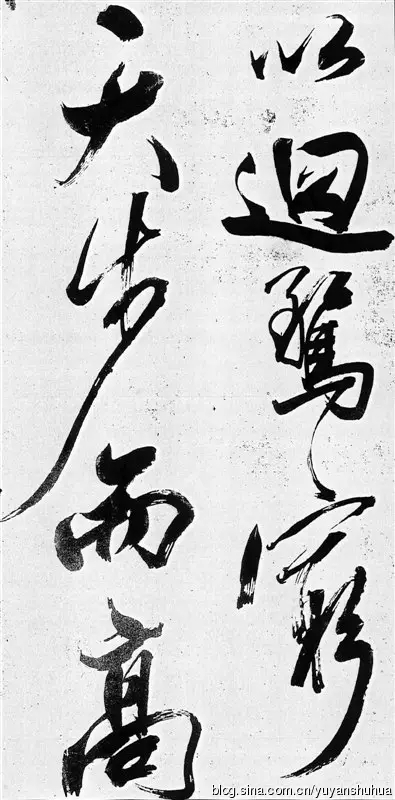 以迴騖窮
天步而高
blog.sina.com.cn/yuyanshuhua